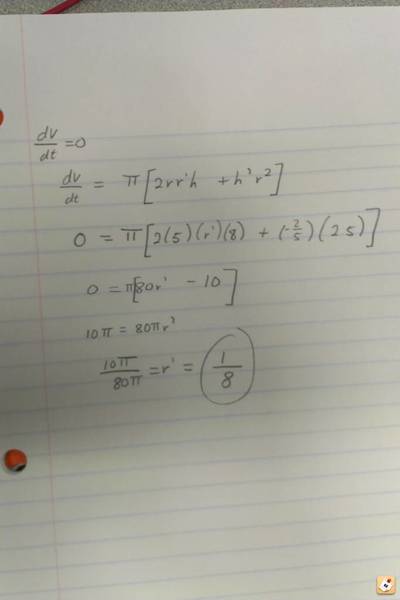 dv/dt = 0
dv/dt = π[2rr'h + h'r²]
0 = π[2(5)(r')(8) + (-2/5)(25)]
0 = π[80r' - 10]
10π = 80πr'
10π/80π = r' = 1/8